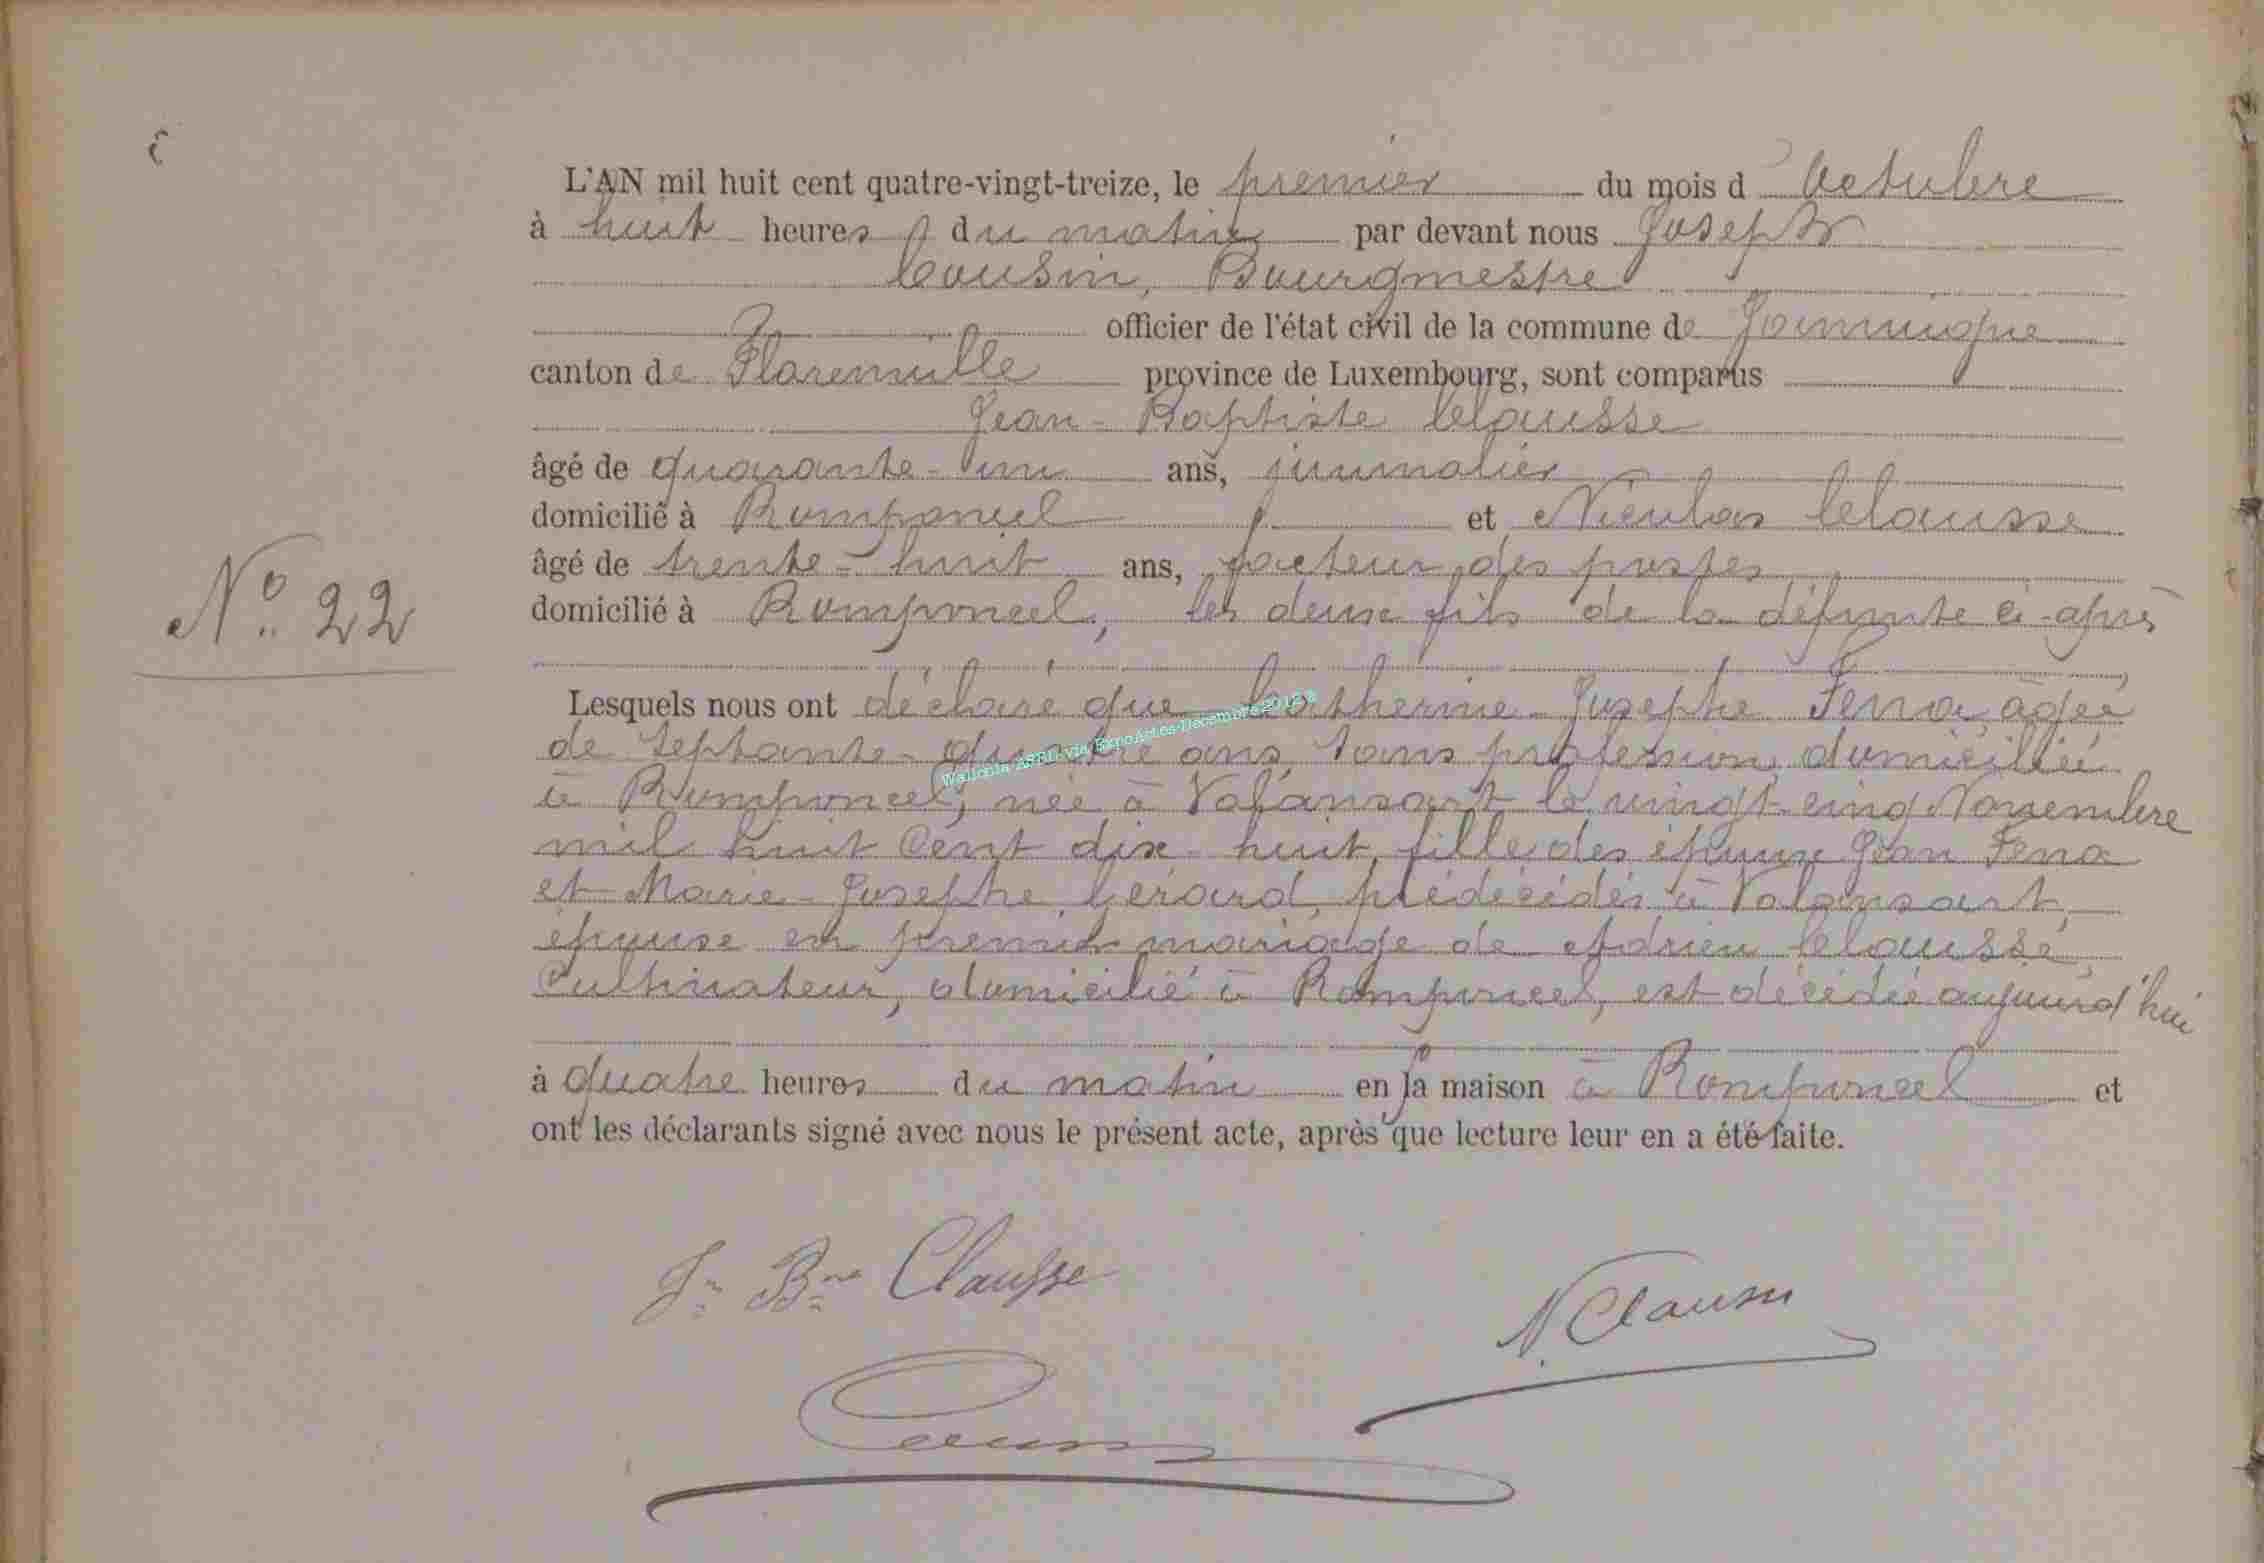 L'AN mil huit cent quatre-vingt-treize, le premier du mois d'Octobre
à huit heures du matin par devant nous Joseph
Cousin, Bourgmestre
officier de l'état civil de la commune de Jamoigne
canton de Florenville province de Luxembourg, sont comparus
Jean-Baptiste Clausse
âgé de quarante-un ans, journalier
domicilié à Romponcel et Nicolas Clausse
âgé de trente-huit ans, facteur des postes
domicilié à Romponcel, les deux fils de la défunte ci-après
N° 22
Lesquels nous ont déclaré que Catherine-Josephe Fena, âgée
de septante-quatre ans, sans profession, domiciliée
à Romponcel, née à Valansart le vingt-cinq Novembre
mil huit cent dix-huit, fille des époux Jean Fena
et Marie-Josephe Gérard, prédécédés à Valansart,
épouse en premier mariage de Adrien Clausse,
cultivateur, domicilié à Romponcel, est décédée aujourd'hui
à quatre heures du matin en sa maison à Romponcel et
ont les déclarants signé avec nous le présent acte, après que lecture leur en a été faite.
Jn Bte Clausse
N. Clausse
Cousin
Wallonia ASBL via ExpoActes-Decembre 2012